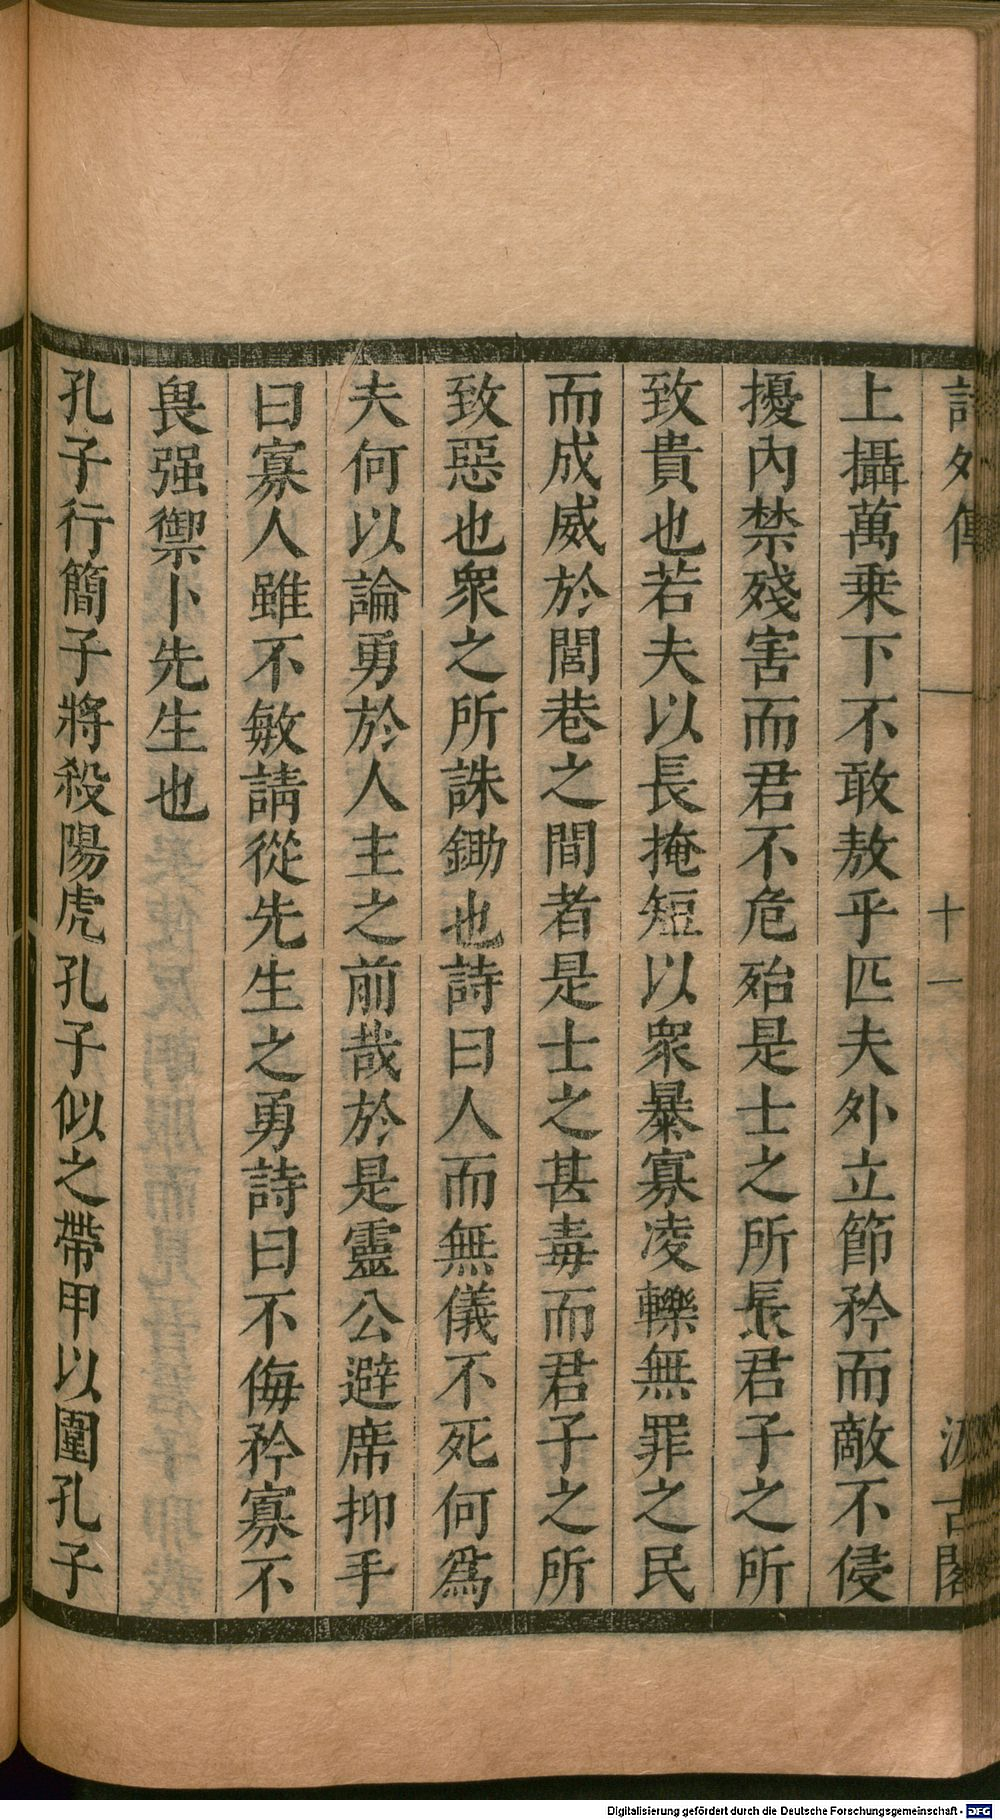 詩外傳 十一 汲古閣
上攝萬乗下不敢敖乎匹夫外立節矜而敵不侵
擾內禁殘害而君不危殆是士之所長君子之所
致貴也若夫以長掩短以衆暴寡凌轢無罪之民
而成威於閭巷之間者是士之甚毒而君子之所
致惡也衆之所誅鋤也詩曰人而無儀不死何爲
夫何以論勇於人主之前哉於是靈公避席抑手
曰寡人雖不敏請從先生之勇詩曰不侮矜寡不
畏强禦卜先生也
孔子行簡子將殺陽虎孔子似之帶甲以圍孔子
Digitalisierung gefördert durch die Deutsche Forschungsgemeinschaft - DFG